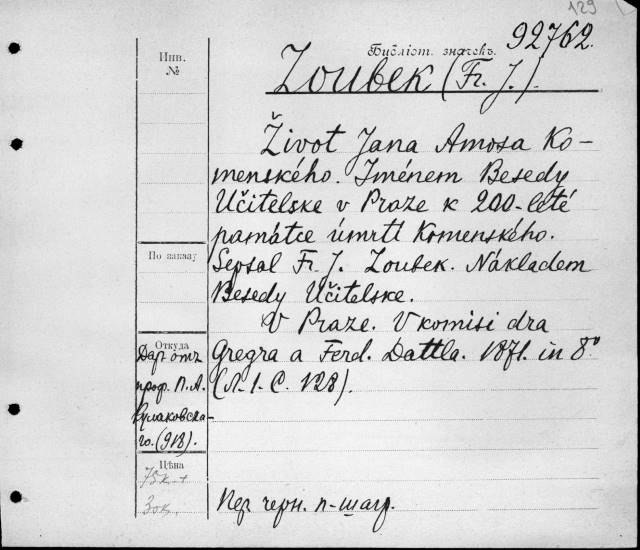 129
92762.
Инв.
№
Библіот. значекъ.
Zoubek (Fr. J.).
Život Jana Amosa Ko-
menského. Jménem Besedy
Učitelske v Praze k 200-leté
památce úmrtí Komenského.
По заказу
Sepsal Fr. J. Zoubek. Nákladem
Besedy Učitelske.
V Praze. V komisi dra
Откуда
Даръ отъ
проф. П. А.
Кулаковска-
го. (918).
Gregra a Ferd. Dattla. 1871. in 8°
(Л. 1. С. 128).
Цѣна
75к.+
30к.
Пер. черн. п-шагр.